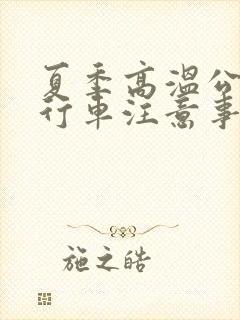 夏季高温公
行车注意事
施之皓